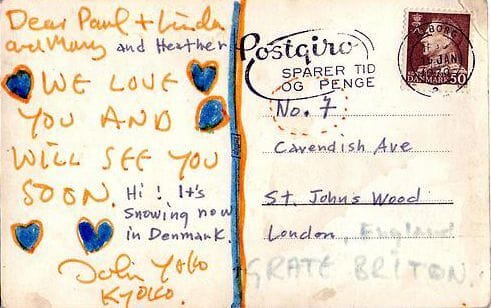 Dear Paul + Linda
and Mary and Heather
WE LOVE
YOU AND
WILL SEE YOU
SOON. Hi! It's
snowing now
in Denmark.
John Yoko
KYOKO.
Postgiro
SPARER TID
OG PENGE
DANMARK 50
No. 7
Cavendish Ave
St. Johns Wood
London, England
GRATE BRITON.